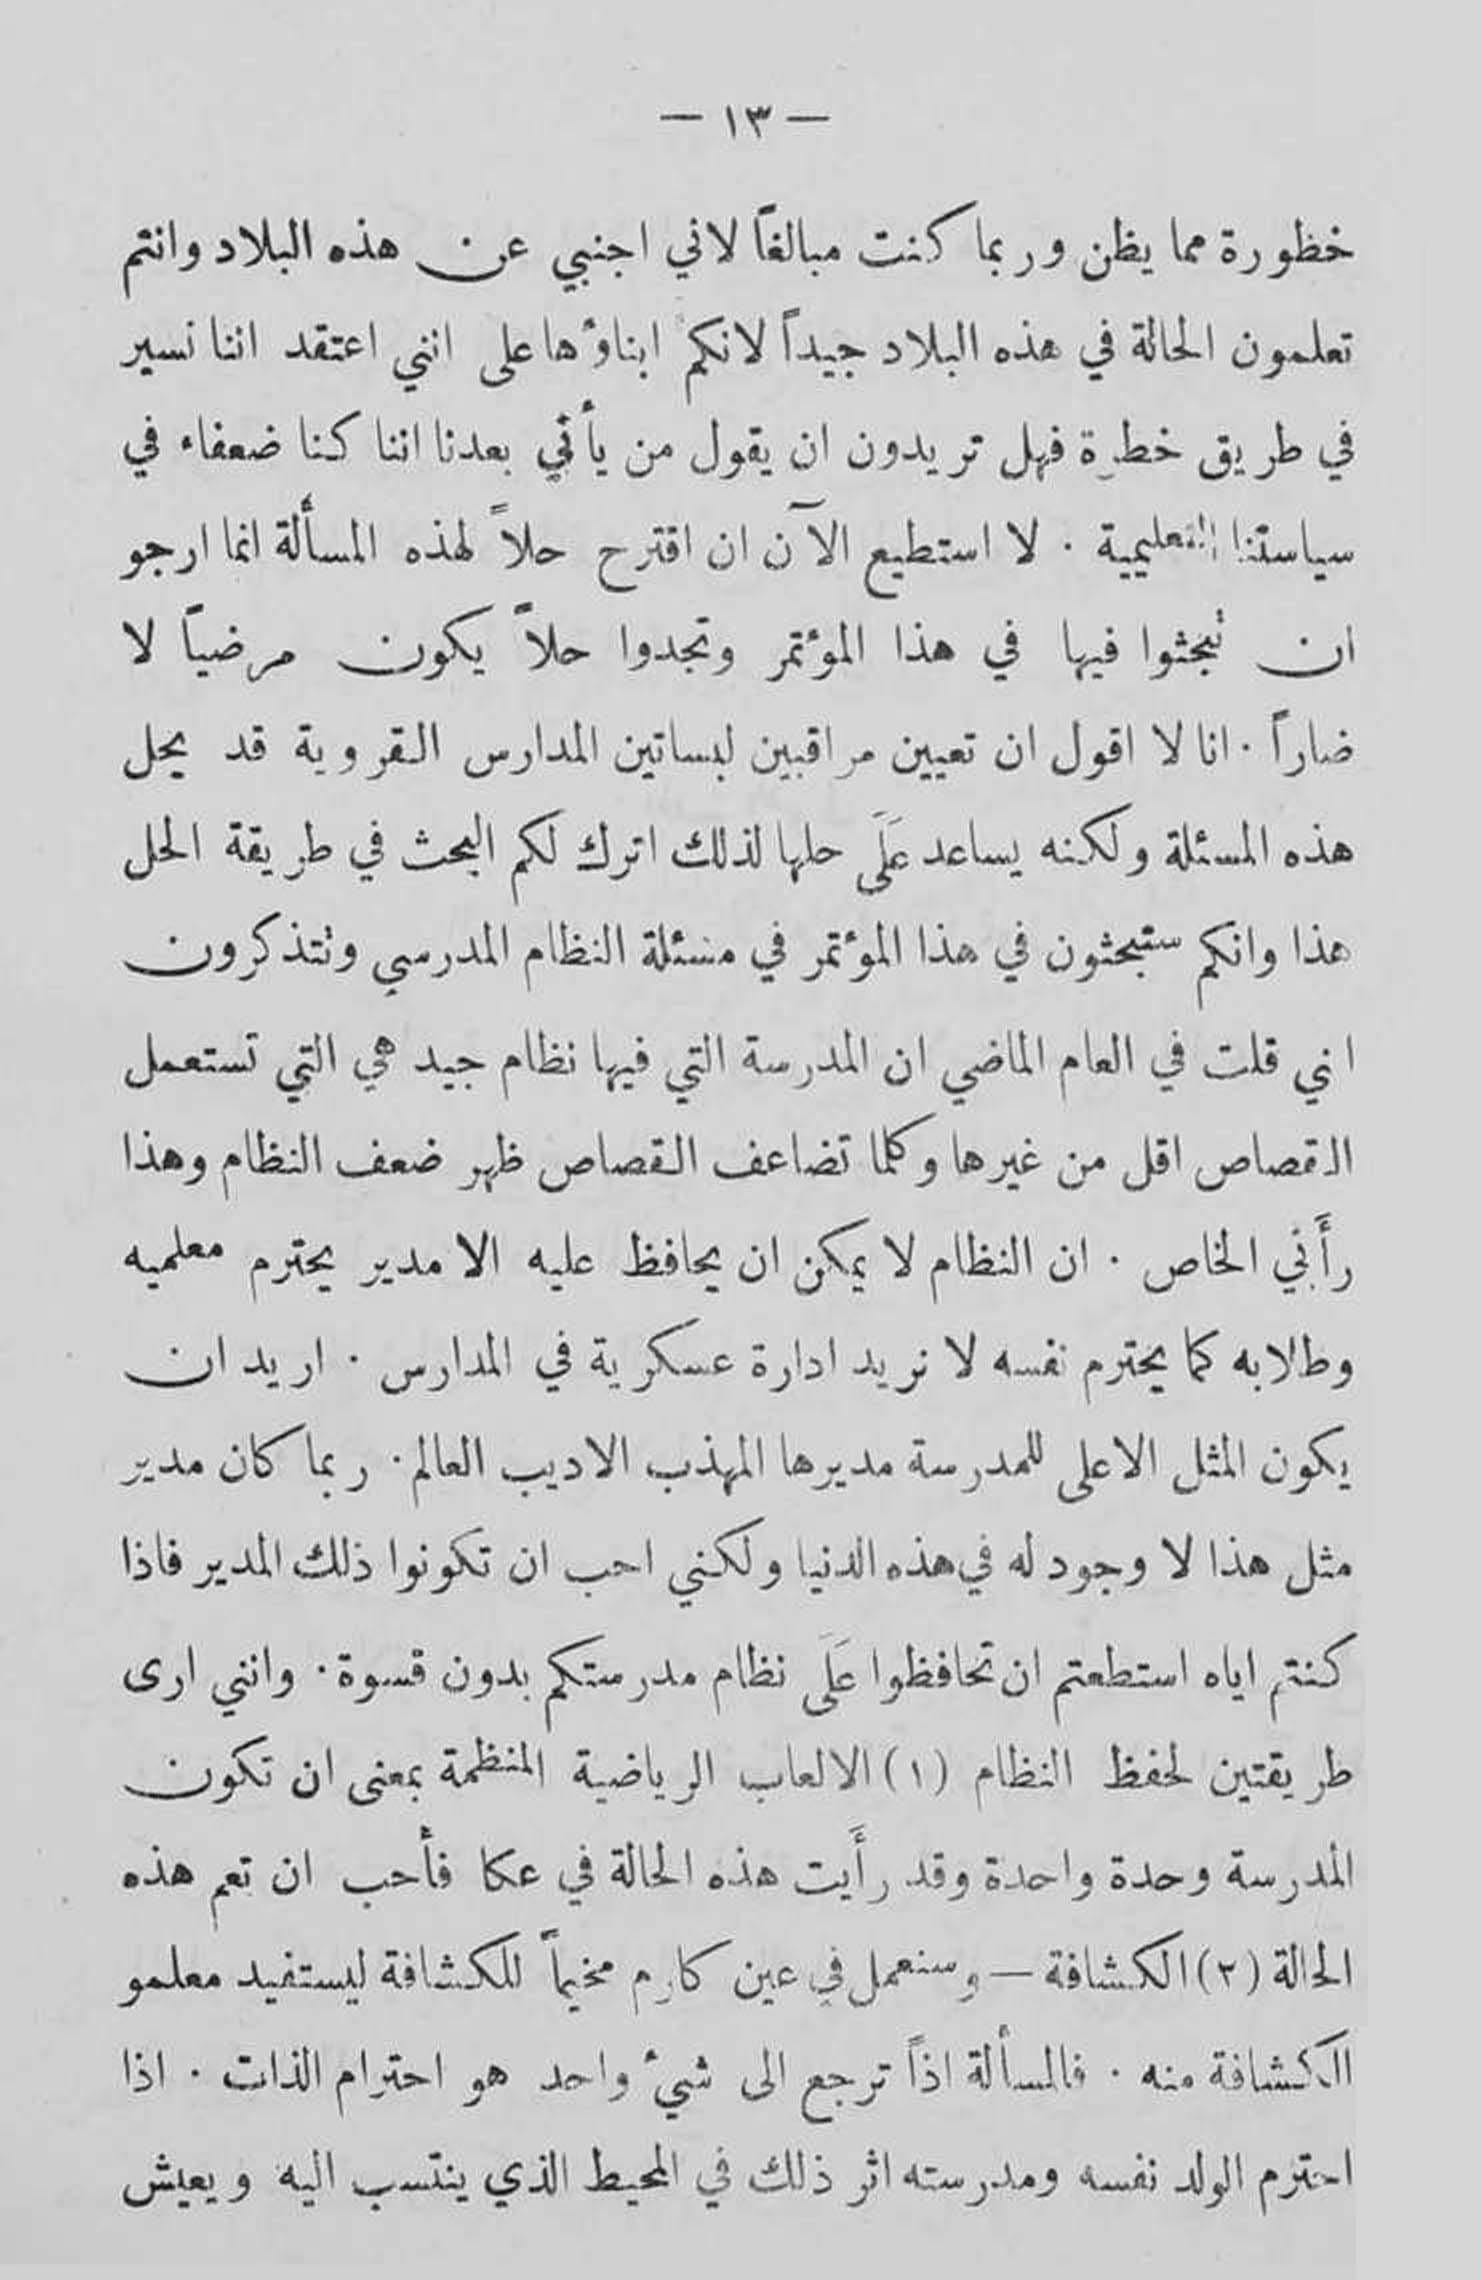 — ١٣ —
خظورة مما يظن وربما كنت مبالغاً لاني اجنبي عن هذه البلاد وانتم
تعلمون الحالة في هذه البلاد جيداً لانكم ابناؤها على انني اعتقد اننا نسير
في طريق خطرة فهل تريدون ان يقول من يأتي بعدنا اننا كنا ضعفاء في
سياستنا التعليمية . لا استطيع الآن ان اقترح حلاً لهذه المسألة انما ارجو
ان تبحثوا فيها في هذا المؤتمر وتجدوا حلاً يكون مرضياً لا
ضاراً . انا لا اقول ان تعيين مراقبين لبساتين المدارس القروية قد يحل
هذه المسئلة ولكنه يساعد عَلَى حلها لذلك اترك لكم البحث في طريقة الحل
هذا وانكم ستبحثون في هذا المؤتمر في مسئلة النظام المدرسي وتتذكرون
اني قلت في العام الماضي ان المدرسة التي فيها نظام جيد هي التي تستعمل
القصاص اقل من غيرها وكلما تضاعف القصاص ظهر ضعف النظام وهذا
رأَيي الخاص . ان النظام لا يمكن ان يحافظ عليه الا مدير يحترم معلميه
وطلابه كما يحترم نفسه لا نريد ادارة عسكرية في المدارس . اريد ان
يكون المثل الاعلى للمدرسة مديرها المهذب الاديب العالم . ربما كان مدير
مثل هذا لا وجود له في هذه الدنيا ولكني احب ان تكونوا ذلك المدير فاذا
كنتم اياه استطعتم ان تحافظوا عَلَى نظام مدرستكم بدون قسوة . وانني ارى
طريقتين لحفظ النظام (١) الالعاب الرياضية المنظمة بمعنى ان تكون
المدرسة وحدة واحدة وقد رأَيت هذه الحالة في عكا فأحب ان تعم هذه
الحالة (٢) الكشافة — وسنعمل في عين كارم مخيماً للكشافة ليستفيد معلمو
الكشافة منه . فالمسألة اذاً ترجع الى شيءٍ واحد هو احترام الذات . اذا
احترم الولد نفسه ومدرسته اثر ذلك في المحيط الذي ينتسب اليه ويعيش